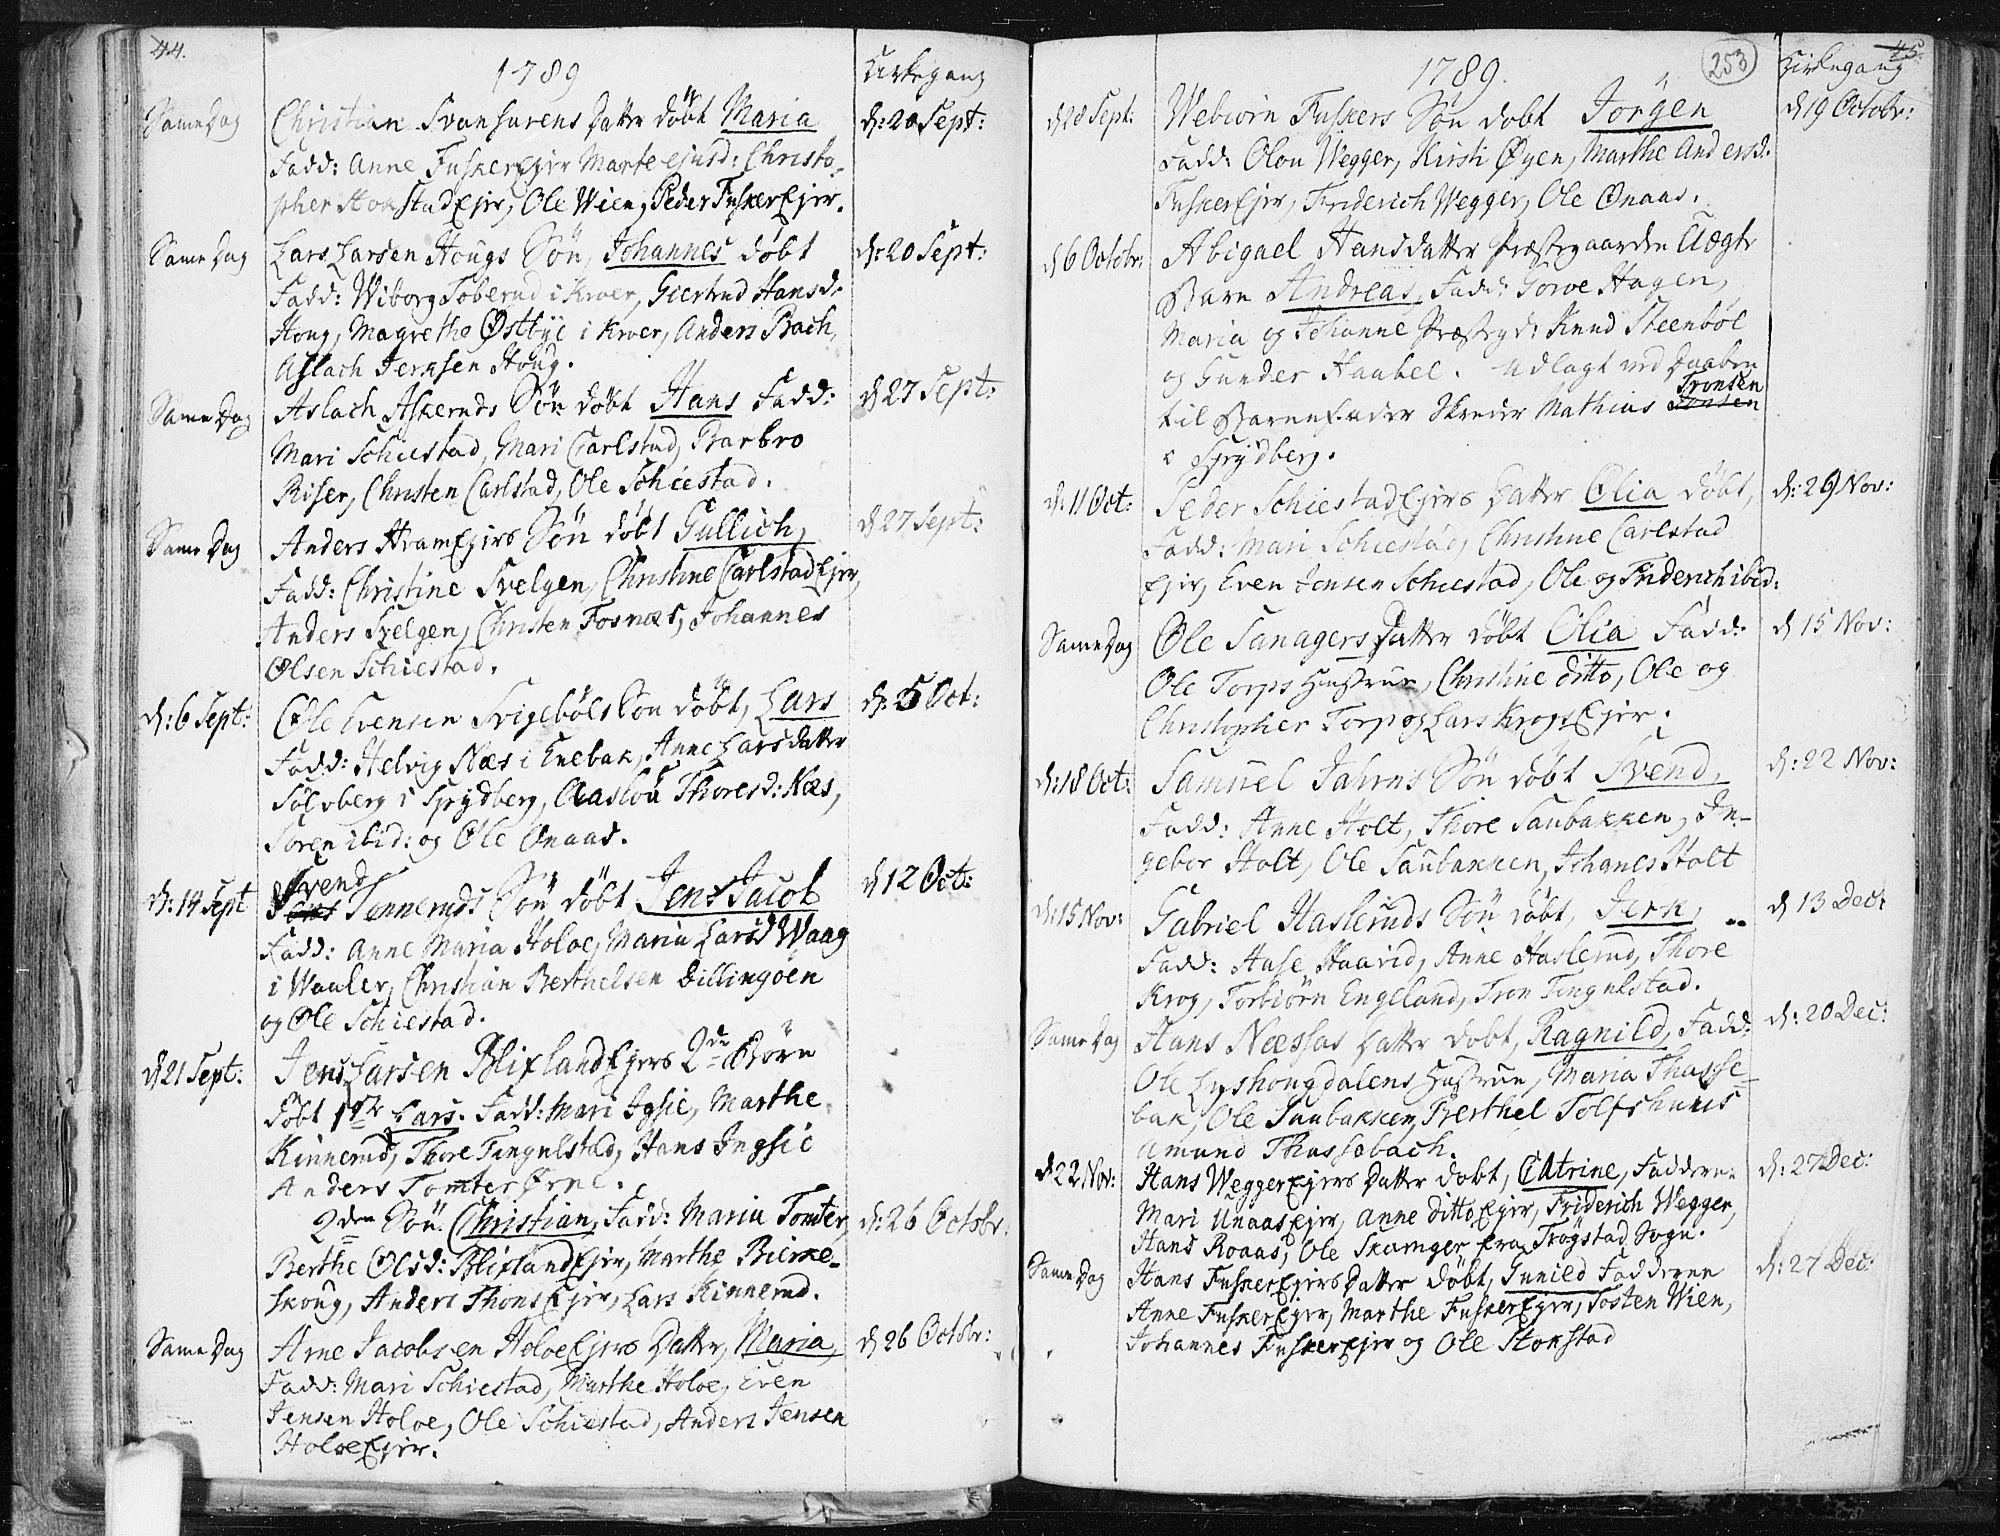 44.
1789
Kirkegang
Same Dag
Christian Svansurens Datter döbt Maria
d: 20 Sept:
Fadd: Anne FuskerEjer Marte ejusd: Christo-
pher HonstadEjer, Ole Wien, Peder FuskerEjer.
Same Dag
Lars Larsen Hougs Sön, Johannes döbt
d: 20 Sept:
Fadd: Wiborg Toberud i Kroer, Giertrud Hansd.
Houg, Magrethe Østbye i Kroer, Anders Bach,
Aslach Jerksen Houg.
Same Dag
Aslach Askeruds Sön döbt Hans Fadd:
d 27 Sept:
Mari Schiestad, Mari Carlstad, Barbro
Riser, Christen Carlstad, Ole Schiestad.
Same Dag
Anders HvamEjers Sön döbt Gullich,
d 27 Sept:
Fadd: Christine Svelgen, Christine CarlstadEjer,
Anders Svelgen, Christen Fosnæs, Johannes
Olsen Schiestad.
d: 6 Sept:
Ole Evensen Svigeböls Sön döbt, Lars
d: 5 Oct:
Fadd: Helvig Næs i Enebak, Anne Larsdatter
Solvberg i Spydberg, Aaslou Thoresd: Næs,
Sören ibid: og Ole Onaas.
Svend
d: 14 Sept
Tenneruds Sön döbt Jens Jacob
d 12 Oct:
Fadd: Anne Maria Holoe, Maria Larsd Waag
i Waaler, Christian Berthelsen Dillingöen
og Ole Schiestad.
d 21 Sept:
Jens Larsen BlixlandEjers 2de Börn
döbt 1ste Lars. Fadd: Mari Igsie, Marthe
Kinnerud, Thore Tingulstad, Hans Ingsie
Anders Tomter Ørne.
2den Sön Christian, Fadd: Maria Tomter,
d: 26 Octobr:
Berthe Olsd: BlixlandEjer, Marthe Bierke-
skoug, Anders ThonsEjer, Lars Kinnerud.
Same Dag
Arne Jacobsen HoloeEjers Datter, Maria,
d 26 Octobr:
Fadd: Mari Schiestad, Marthe Holoe, Even
Jensen Holoe, Ole Schiestad, Anders Jensen
HoloeEjer.
45
253
1789.
Kirkegang
d 28 Sept:
Webiörn Fuskers Sön döbt Jörgen
d 19 Octobr:
Fadd: Olou Wegger, Kirsti Øyen, Marthe Andersd.
FuskerEjer, Friderich Wegger, Ole Onaas.
d 6 Octobr:
Abigael Hansdatter Præstegaarden Uægte
Barn Andreas, Fadd: Torve Hagen,
Maria og Johanne Præstegd: Knud Steenböl
og Gunder Haabel. Udlagt ved Daaben
Tronsen
til Barnefader Skreder Mathias Jensen
i Spydberg.
d: 11 Oct:
Peder SchiestadEjers Datter Olia döbt,
d: 29 Nov:
Fadd: Mari Schiestad, Christine Carlstad
Ejer, Even Jensen Schiestad, Ole og Friderich ibid:
Same Dag
Ole Sanagers Datter döbt Olia Fadd:
d 15 Nov:
Ole Torps Hustrue, Christine ditto, Ole og
Christopher Torp og Lars KrogsEjer.
d: 18 Oct:
Samuel Jahrns Sön döbt Svend,
d: 22 Nov:
Fadd: Anne Holt, Thore Saubakken, In-
gebor Holt, Ole Saubakken, Johanes Holt
d: 15 Nov:
Gabriel Hasleruds Sön döbt, Jerk,
d 13 Dec:
Fadd: Hase Haavid, Anne Haslerud, Thore
Krog, Torbiörn Engeland, Tron Tingulstad.
Same Dag
Hans Næssas Datter döbt, Ragnild, Fadd:
d: 20 Dec:
Ole Lyshougdalens Hustrue, Maria Thasse-
bak, Ole Saubakken, Berthel Tolfshuus
Amund Thassebach.
d 22 Nov:
Hans WeggerEjers Datter döbt, Catrine, Fadderne
d: 27 Dec:
Mari UnaasEjer, Anne ditto Ejer, Friderich Wegger,
Hans Roaas, Ole Skamger fra Trögstad Sogn.
Same Dag
Hans FuskerEjers Datter döbt, Gunild Fadderne
d: 27 Dec:
Anne FuskerEjer, Marthe FuskerEjer, Tosten Wien,
Johannes FuskerEjer og Ole Honstad